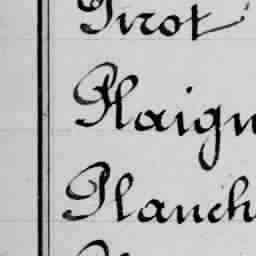 Pirot
Plaign
Planch